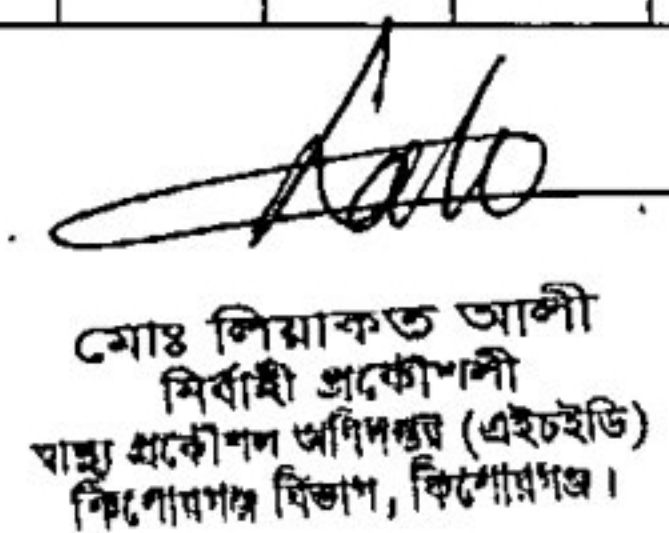 মোঃ লিয়াকত আলী
নির্বাহী প্রকৌশলী
স্বাস্থ্য প্রকৌশল অধিদপ্তর (এইচইডি)
কিশোরগঞ্জ বিভাগ, কিশোরগঞ্জ।